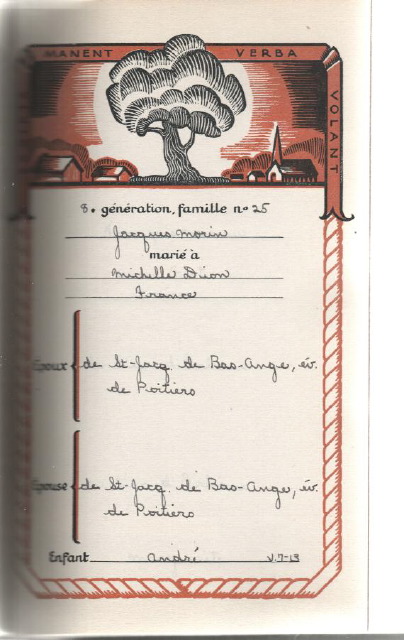 MANENT VERBA
VOLANT
8. génération, famille nº 25
Jacques Morin
marié à
Michelle Dion
France
Epoux de St-Jacq. de Bas-Ange, év.
de Poitiers
Epouse de St-Jacq. de Bas-Ange, év.
de Poitiers
Enfant André V. 7-13